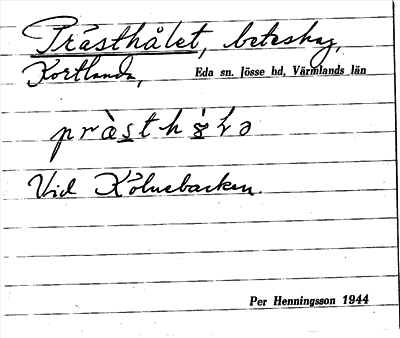 Prästhålet, beteshag,
Kortlanda,
Eda sn. Jösse hd, Värmlands län
Vid Kölnebacken.
Per Henningsson 1944